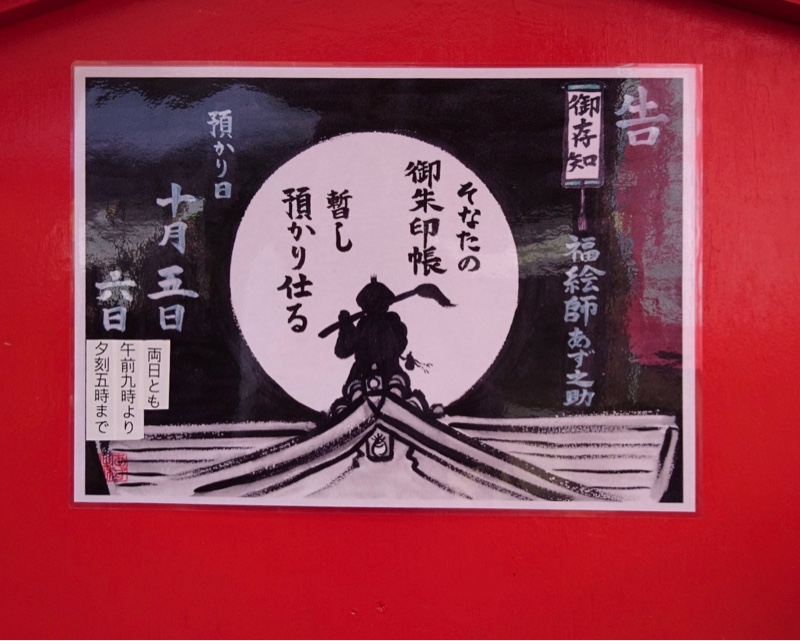 告
御存知
福絵師あず之助
そなたの
御朱印帳
暫し
預かり仕る
預かり日
十月五日
六日
両日とも
午前九時より
夕刻五時まで